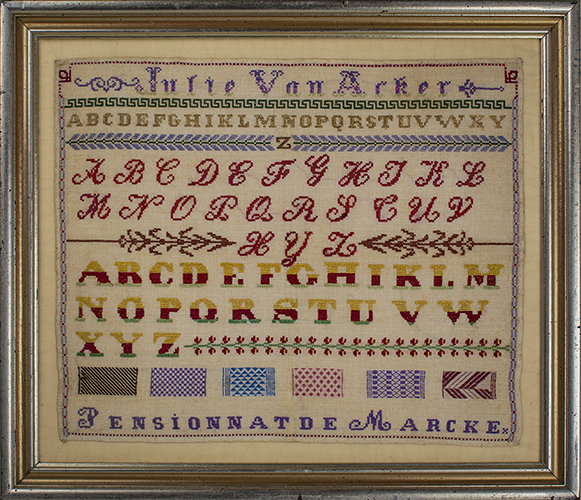 Julie Van Acker
ABCDEFGHIKLMNOPQRSTUVWXY
Z
A B C D E F G H I K L
M N O P Q R S T U V
X Y Z
A B C D E F G H I K L M
N O P Q R S T U V W
X Y Z
PENSIONNAT DE MARCKE